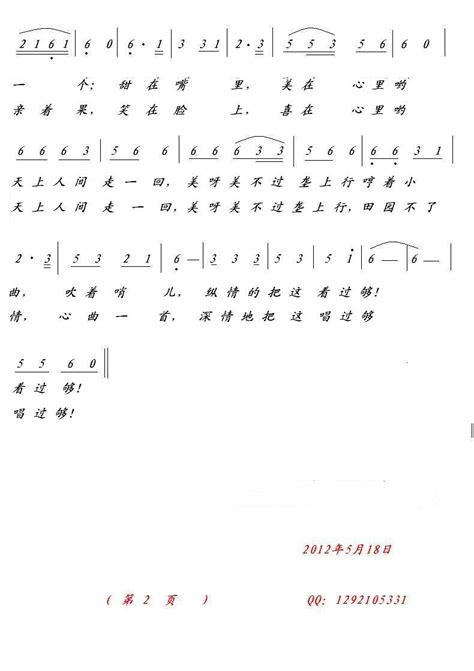 2 1 6 1 | 6 0 | 6 · 1 | 3 3 1 | 2 · 3 | 5 5 3 | 5 6 | 6 0 |
一 个; 甜 在 嘴 里, 美 在 心 里 哟
亲 着 果, 笑 在 脸 上, 喜 在 心 里 哟
6 6 6 3 | 5 6 6 | 6 6 | 6 3 3 | 2 2 1 | 5 · 6 | 6 6 3 1 |
天 上 人 间 走 一 回, 美 呀 美 不 过 垄 上 行 哼 着 小
天 上 人 间 走 一 回, 美 呀 美 不 过 垄 上 行, 田 园 不 了
2 · 3 | 5 3 2 1 | 6 — | 3 3 3 | 5 3 | 5 1 | 6 — | 6 — |
曲, 吹 着 哨 儿, 纵 情 的 把 这 看 过 够!
情, 心 曲 一 首, 深 情 地 把 这 唱 过 够
5 5 6 0 ‖
看 过 够!
唱 过 够!
2012年5月18日
( 第 2 页 ) QQ: 1292105331